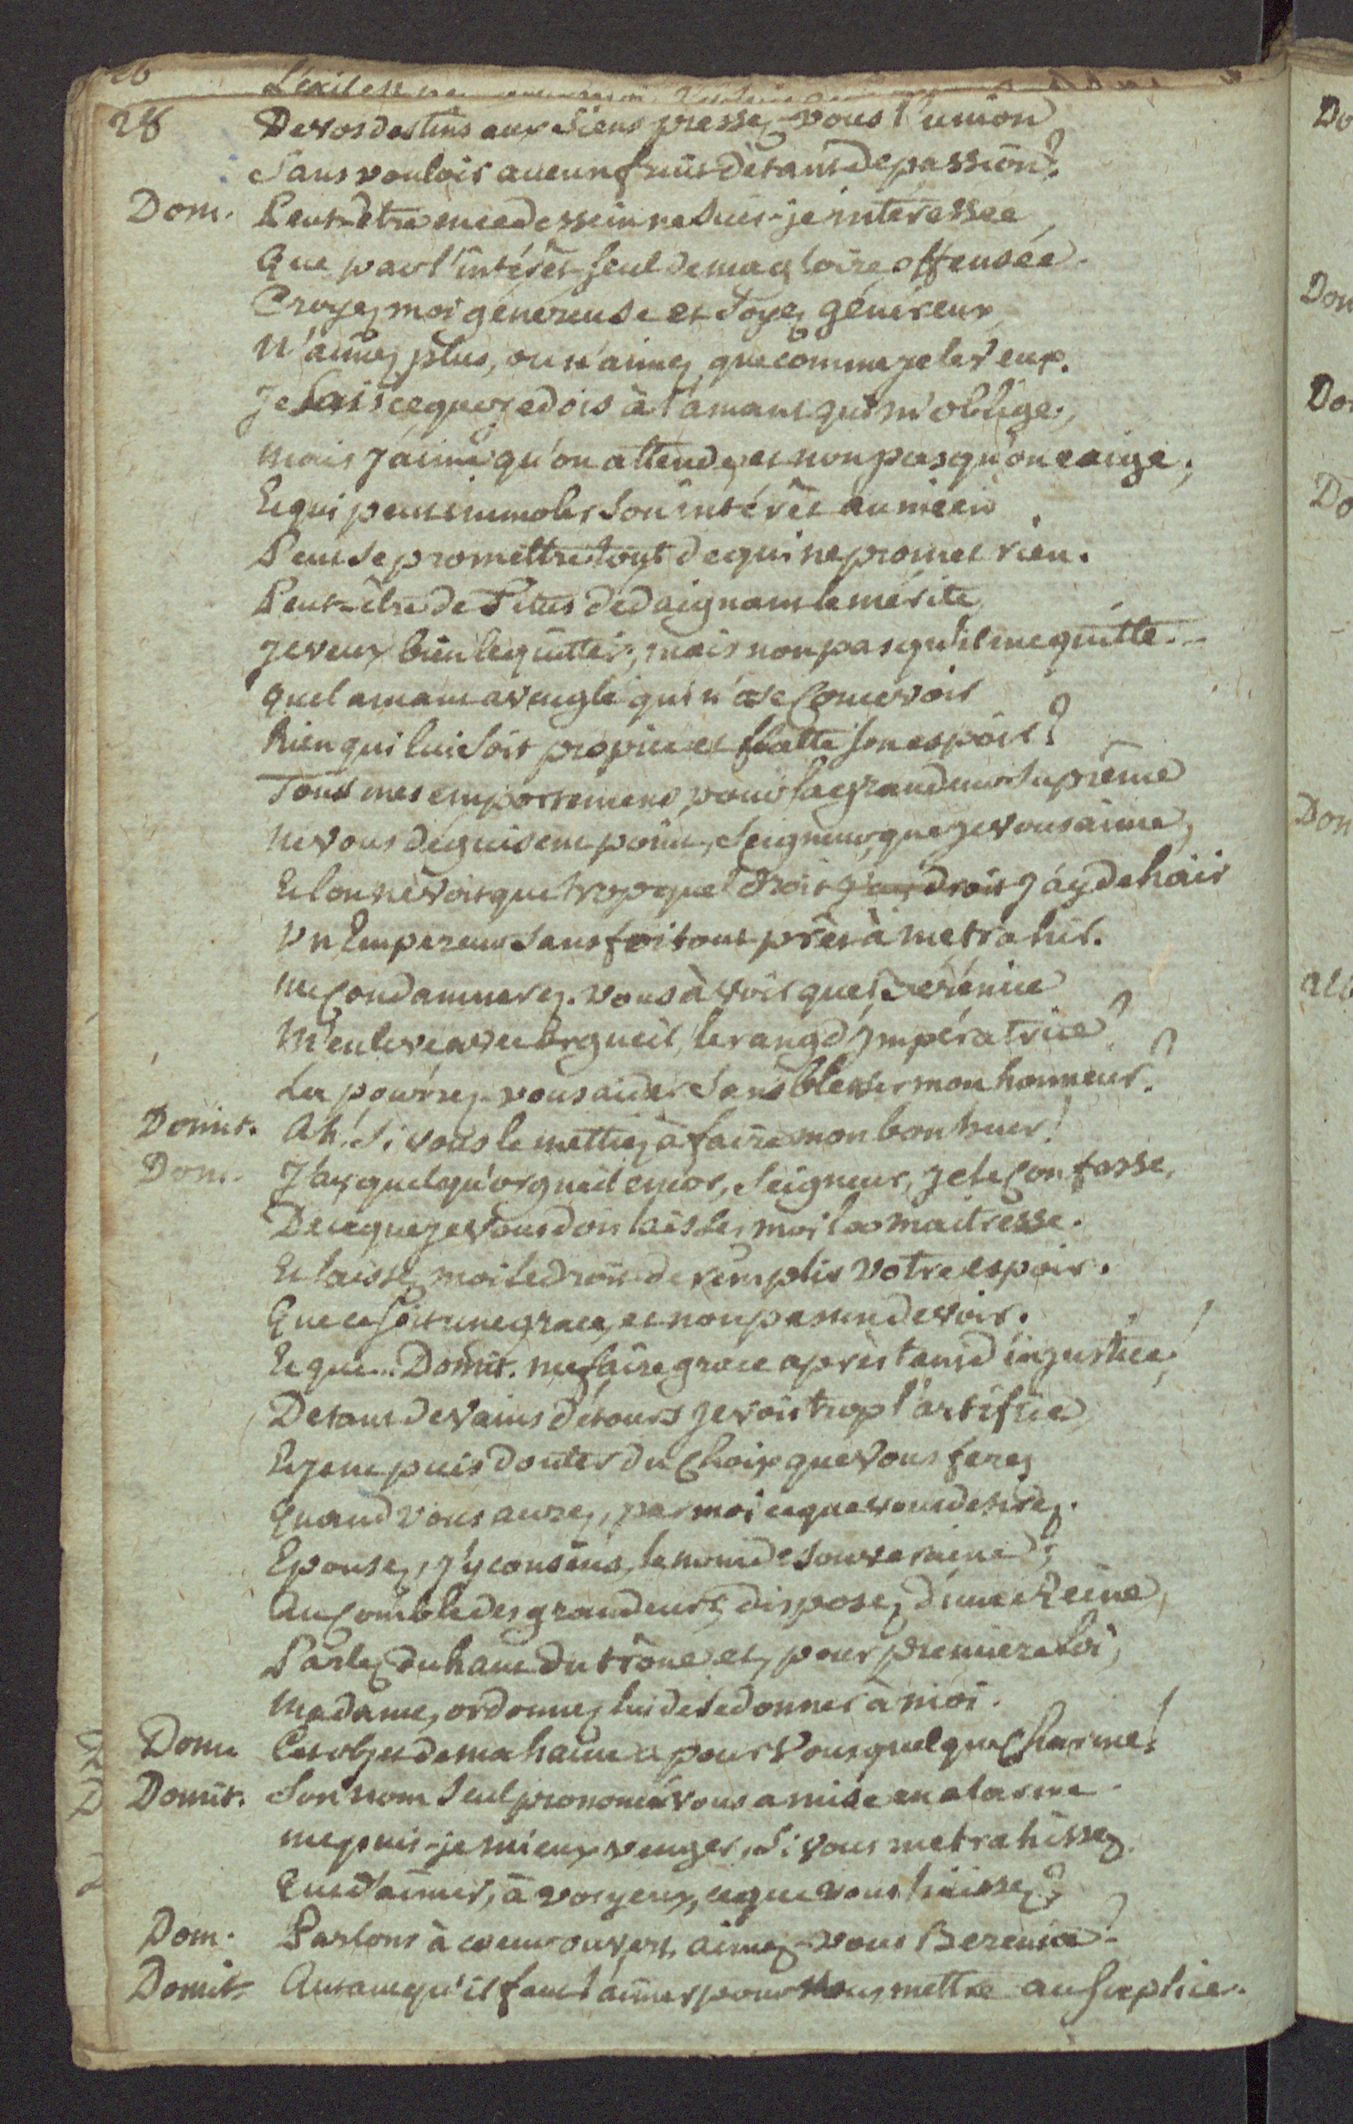 26
L'exil est
28 De vos destins aux siens pressez-vous l'union
Sans vouloir aucun fruit de tant de passion?
Dom. Peut-être en ce dessein ne suis-je intéressée
Que par l'intérêt seul de ma gloire offensée.
Croyez moi génereuse et soyez généreux
N'aimez plus, ou n'aimez que comme je le veux.
Je sais ce que je dois à l'amant qui m'oblige,
mais j'aime qu'on attende, et non pas qu'on exige;
Et qui peut immoler son intérêt au mien
Peut se promettre tout de qui ne promet rien.
Peut-être de Titus dedaignant le mérite
je veux bien le quitter, mais non pas qu'il me quitte.
quel amant aveugle qui n'ose concevoir
Rien qui lui soit propice et flatte son espoir?
Tous mes emportemens pour la grandeur suprême
ne vous déguisent point, Seigneur, que je vous aime,
Et l'on ne voit que trop quel droit j'ay droit j'ay de haïr
Un Empereur sans foi tout prêt à me trahir.
me condamnerez-vous à voir que Bérénice
M'enleve avec orgueil le rang d'Impératrice?
Lui pourrez-vous aider sans blesser mon honneur?
Domit. Ah! si vous le mettiez à faire mon bonheur!
Dom. J'ay quelqu'orgueil encor, Seigneur, je le confesse,
De ce que je vous dois laissez moi la maitresse.
Et laissez moi le droit de remplir votre espoir.
Que ce soit une grace, et non pas un devoir.
Et que... Domit. me faire grace après tant d'injustice!
De tant de vains détours je vois trop l'artifice,
Et je ne puis douter du choix que vous ferez
Quand vous aurez, par moi ce que vous desirez.
Epousez, j'y consens, le nom de souveraine;
Au comble des grandeurs, disposez d'une Reine,
Parlez du haut du trône et, pour premiere loi,
Madame, ordonnez lui de se donner à moi.
Dom. Cet objet de ma haine a pour vous quelque charme!
Domit. Son nom seul prononcé vous a mise en alarme.
me puis-je mieux venger, si vous me trahissez
Que d'aimer, à vos yeux, ce que vous haïssez?
Dom. Parlons à coeur ouvert, aimez-vous Berenice?
Domit. Autant qu'il faut aimer pour vous mettre au suplice.